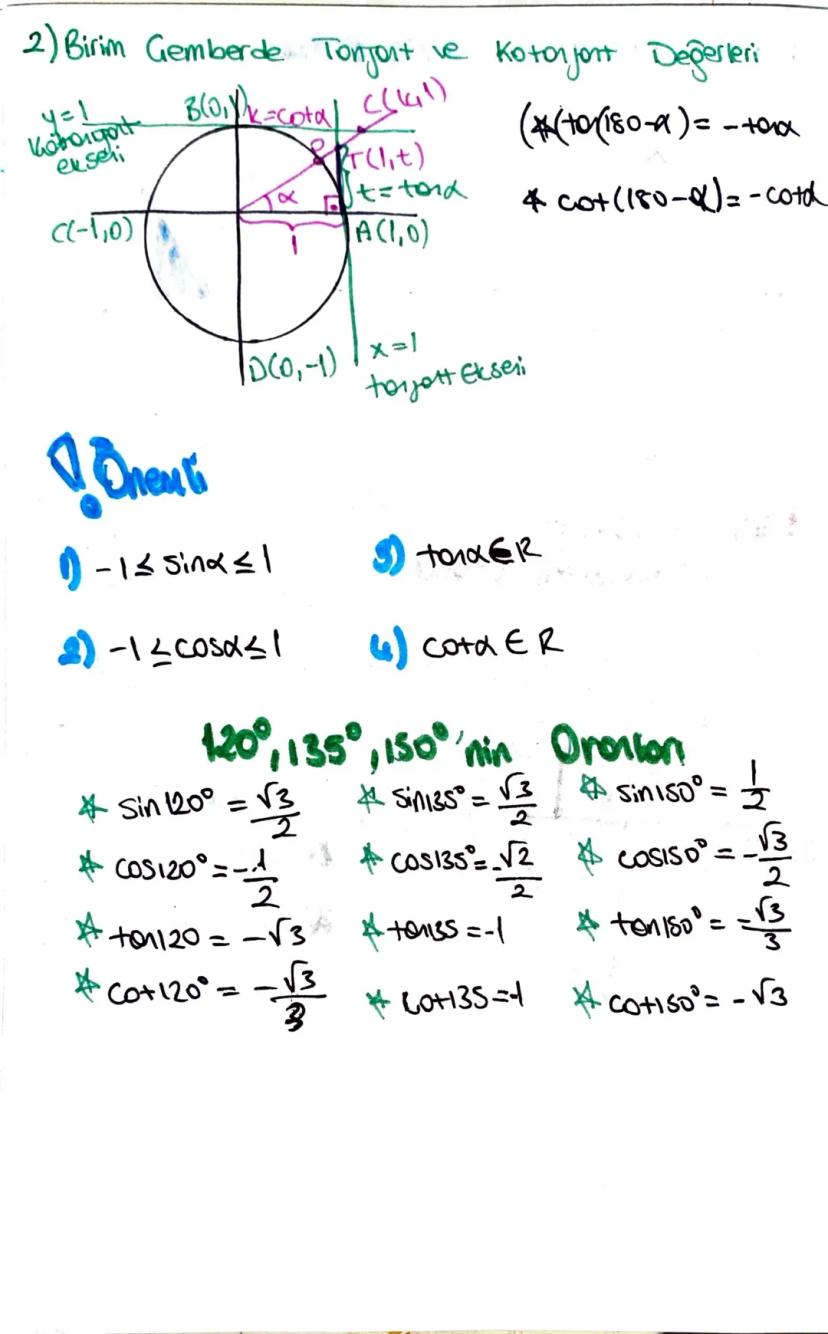 2) Birim Çemberde Tanjant ve Kotanjant Değerleri
y=1
Kotanjant
ekseni
B(0,1)
k=cotα
C(k,1)
P
T(1,t)
t=tanα
α
1
C(-1,0)
A(1,0)
D(0,-1)
x=1
tanjant Ekseni
(*(tan(180-α)= -tanα
* cot(180-α)= -cotα
! Önemli
1) -1≤ sinα ≤1
3) tanα∈R
2) -1≤cosα≤1
4) cotα ∈ R
120°, 135°, 150°'nin Oranları
* sin120° = √3/2
* sin135° = √3/2
* sin150° = 1/2
* cos120° = -1/2
* cos135° = -√2/2
* cos150° = -√3/2
* tan120 = -√3
* tan135 = -1
* tan150° = -√3/3
* cot120° = -√3/3
* cot135 = -1
* cot150° = -√3